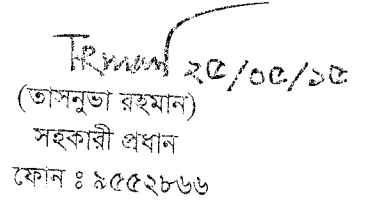 ২৫/০৫/১৫
(তাসনুভা রহমান)
সহকারী প্রধান
ফোন ঃ ৯৫৫২৮৬৬